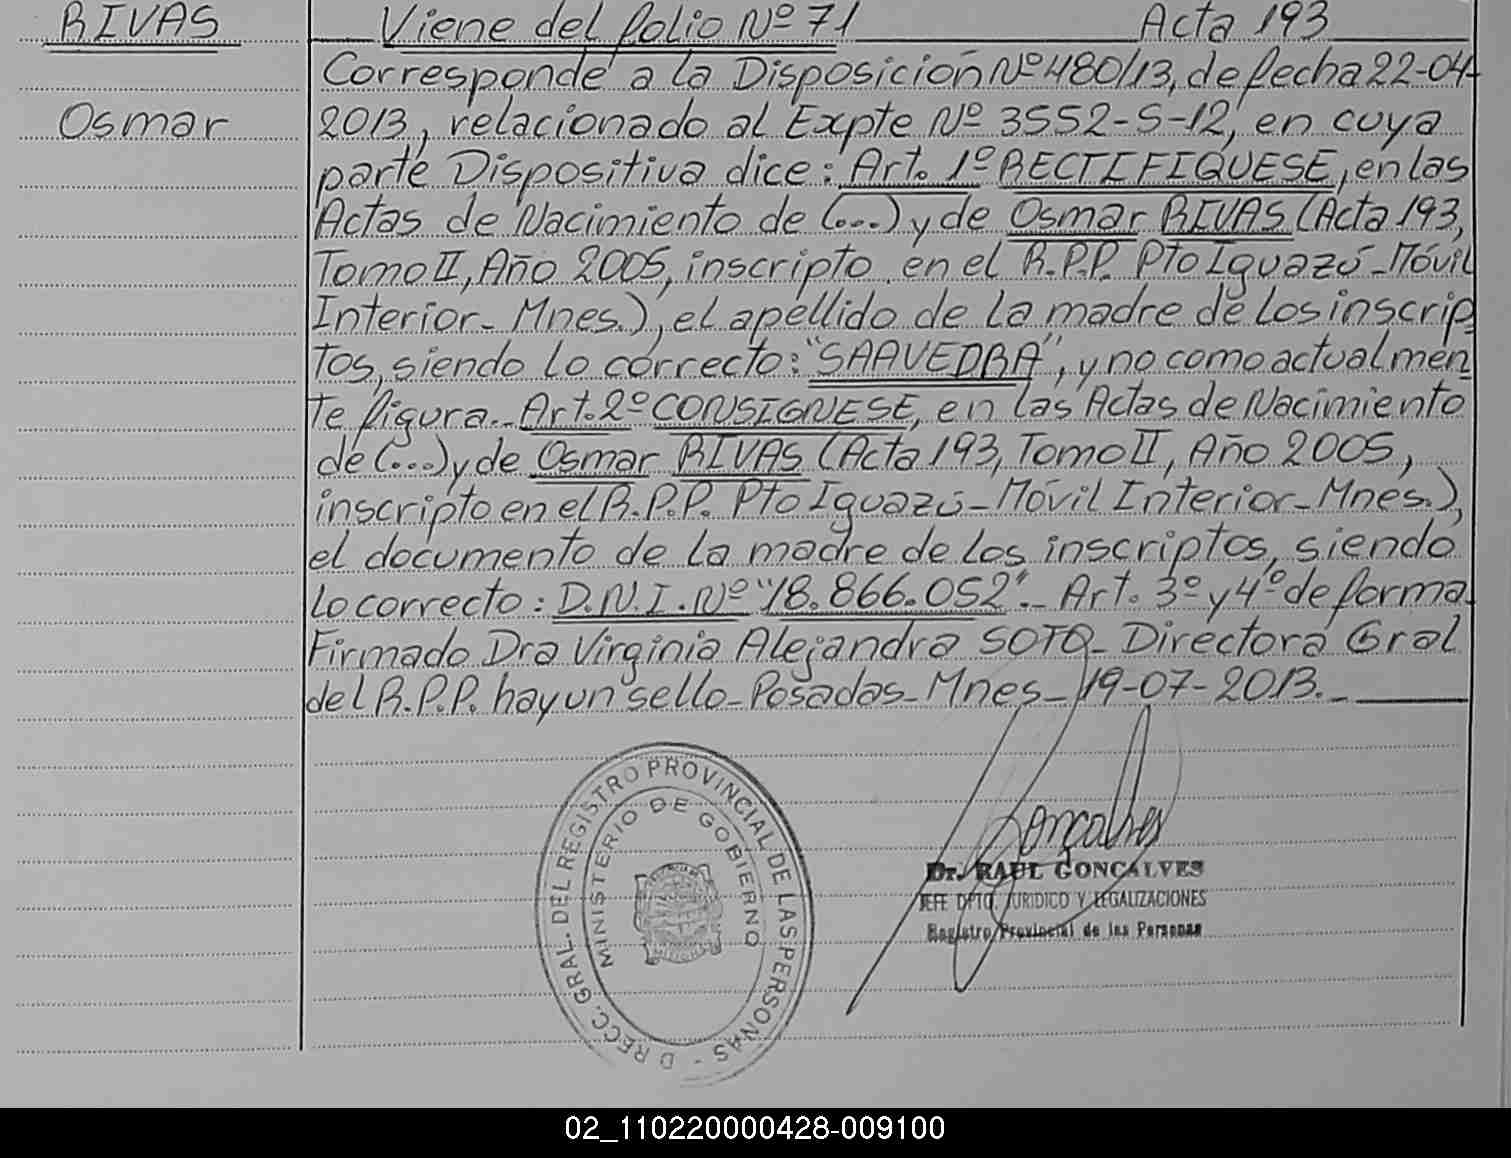 RIVAS
Viene del folio Nº 71 Acta 193
Corresponde a la Disposición Nº 480/13, de fecha 22-04-
Osmar
2013, relacionado al Expte Nº 3552-S-12, en cuya
parte Dispositiva dice: Art. 1º RECTIFIQUESE, en las
Actas de Nacimiento de (...) y de Osmar RIVAS (Acta 193,
Tomo II, Año 2005, inscripto en el R.P.P. Pto Iguazú-Móvil
Interior-Mnes.), el apellido de la madre de los inscrip
tos, siendo lo correcto: "SAAVEDRA", y no como actualmen
te figura.- Art. 2º CONSIGNESE, en las Actas de Nacimiento
de (...) y de Osmar RIVAS (Acta 193, Tomo II, Año 2005,
inscripto en el R.P.P. Pto Iguazú-Móvil Interior-Mnes.),
el documento de la madre de los inscriptos, siendo
lo correcto: D.N.I. Nº "18.866.052".- Art. 3º y 4º de forma.
Firmado Dra Virginia Alejandra SOTO- Directora Gral
del R.P.P. hay un sello-Posadas-Mnes-19-07-2013.-
DIRECC. GRAL. DEL REGISTRO PROVINCIAL DE LAS PERSONAS -
MINISTERIO DE GOBIERNO
MISIONES
Goncalves
Dr. RAUL GONCALVES
JEFE DPTO. JURIDICO Y LEGALIZACIONES
Registro Provincial de las Personas
02_110220000428-009100